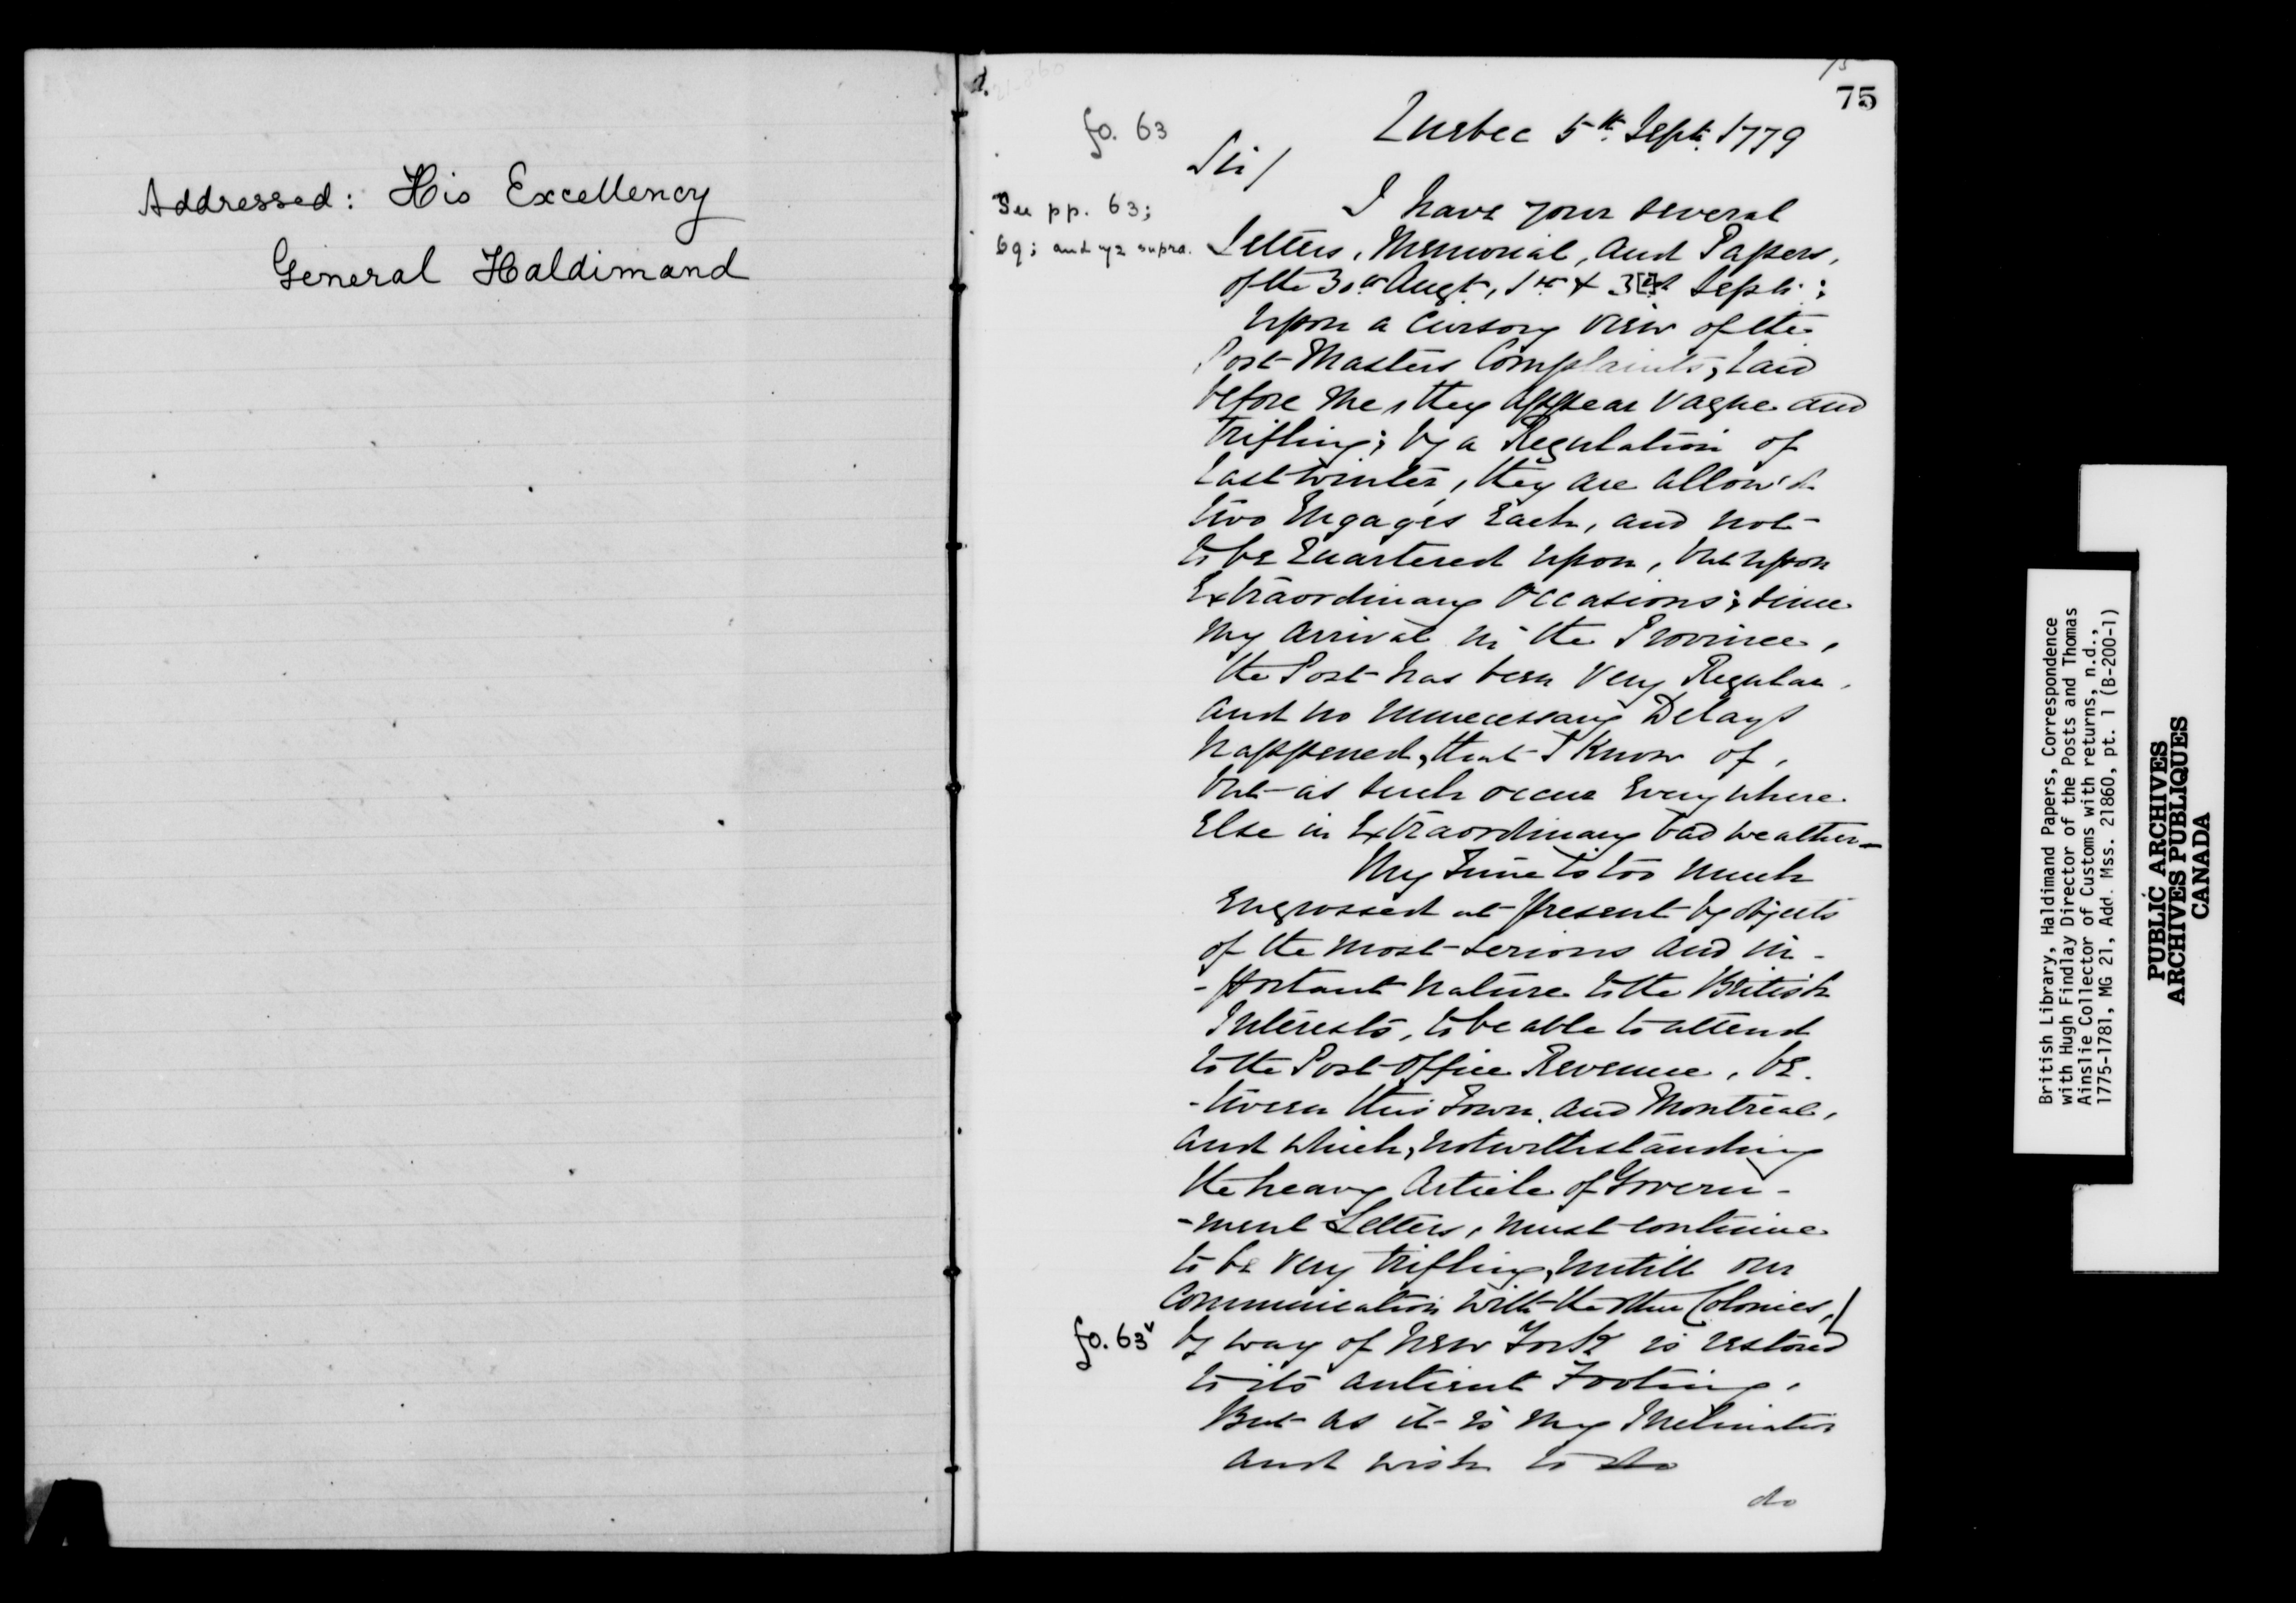 Addressed: His Excellency
General Haldimand
75
fo. 63
Quebec 5th. Septr. 1779
Sir/
See pp. 63;
69; and 72 supra.
I have your several
Letters, Memorial, and Papers,
of the 30th Augt., 1st & 3[r]d Septr.:
Upon a Cursory View of the
Post-Masters Complaints, Laid
before Me, they appear Vague and
trifling; by a Regulation of
Last Winter, they are allow'd
two Engagés Each, and not
to be Quartered upon, but upon
Extraordinary Occasions; since
my arrival in the Province,
the Post has been Very Regular,
and no unnecessary Delays
happened, that I Know of,
but as such occur Every where
Else in Extraordinary bad weather—
My Time is too much
Engrossed at present by objects
of the most serious and im-
-portant nature to the British
Interests, to be able to attend
to the Post Office Revenue, be-
-tween this Town and Montreal,
and which, notwithstanding
the heavy Article of Govern-
-ment Letters, must continue
to be Very trifling, untill our
Communication with the other Colonies,
fo. 63v by way of New York is restored
to its antient Footing.
But as it is my Inclination
and wish to do
do
British Library, Haldimand Papers, Correspondence
with Hugh Findlay Director of the Posts and Thomas
Ainslie Collector of Customs with returns, n.d.,
1775-1781, MG 21, Add. Mss. 21860, pt. 1 (B-200-1)
PUBLIC ARCHIVES
ARCHIVES PUBLIQUES
CANADA